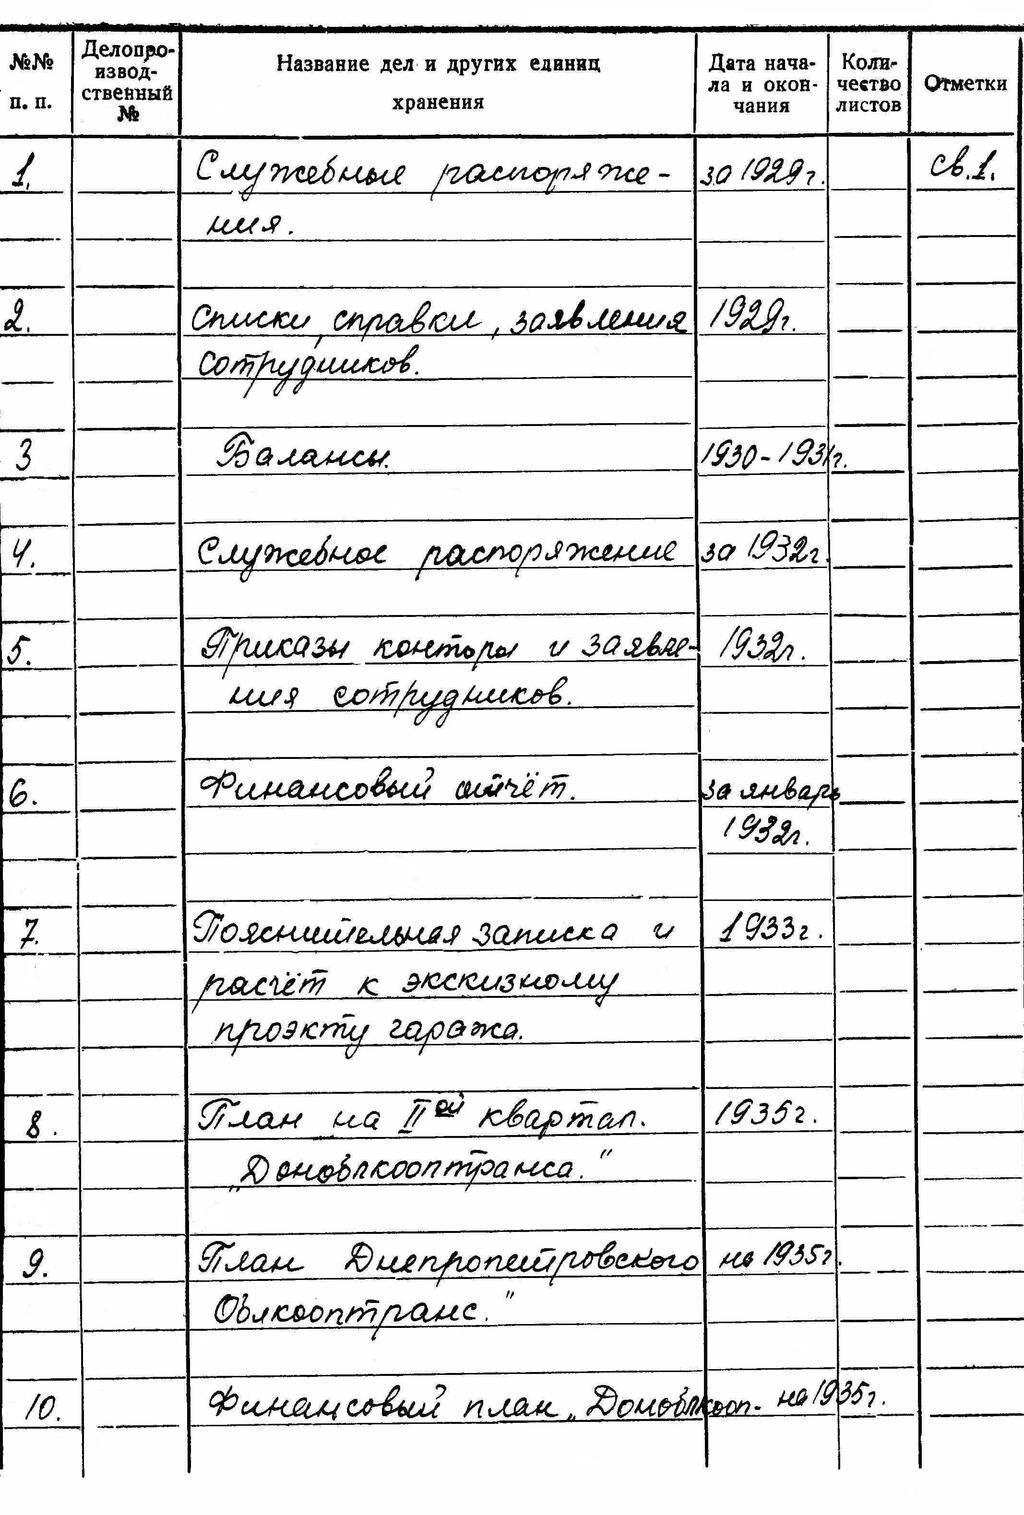 №№ п. п.
Делопро-
извод-
ственный
№
Название дел и других единиц
хранения
Дата нача-
ла и окон-
чания
Коли-
чество
листов
Отметки
1. Служебные распоряже- за 1929г. св.1.
ния.
2. Списки, справки, заявления 1929г.
сотрудников.
3 Балансы. 1930-1931г.
4. Служебное распоряжение за 1932г.
5. Приказы конторы и заявле- 1932г.
ния сотрудников.
6. Финансовый отчёт. за январь
1932г.
7. Пояснительная записка и 1933г.
расчёт к экскизному
проэкту гаража.
8. План на IIой квартал. 1935г.
„Доноблкооптранса."
9. План Днепропетровского на 1935г.
Облкооптранс."
10. Финансовый план „Доноблкооп- на 1935г.